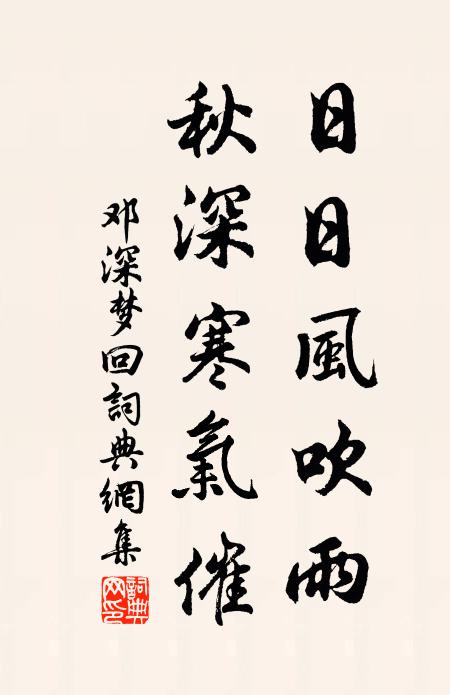 日日風吹雨
秋深寒氣催
邓深梦回詞典網集
詞典網印